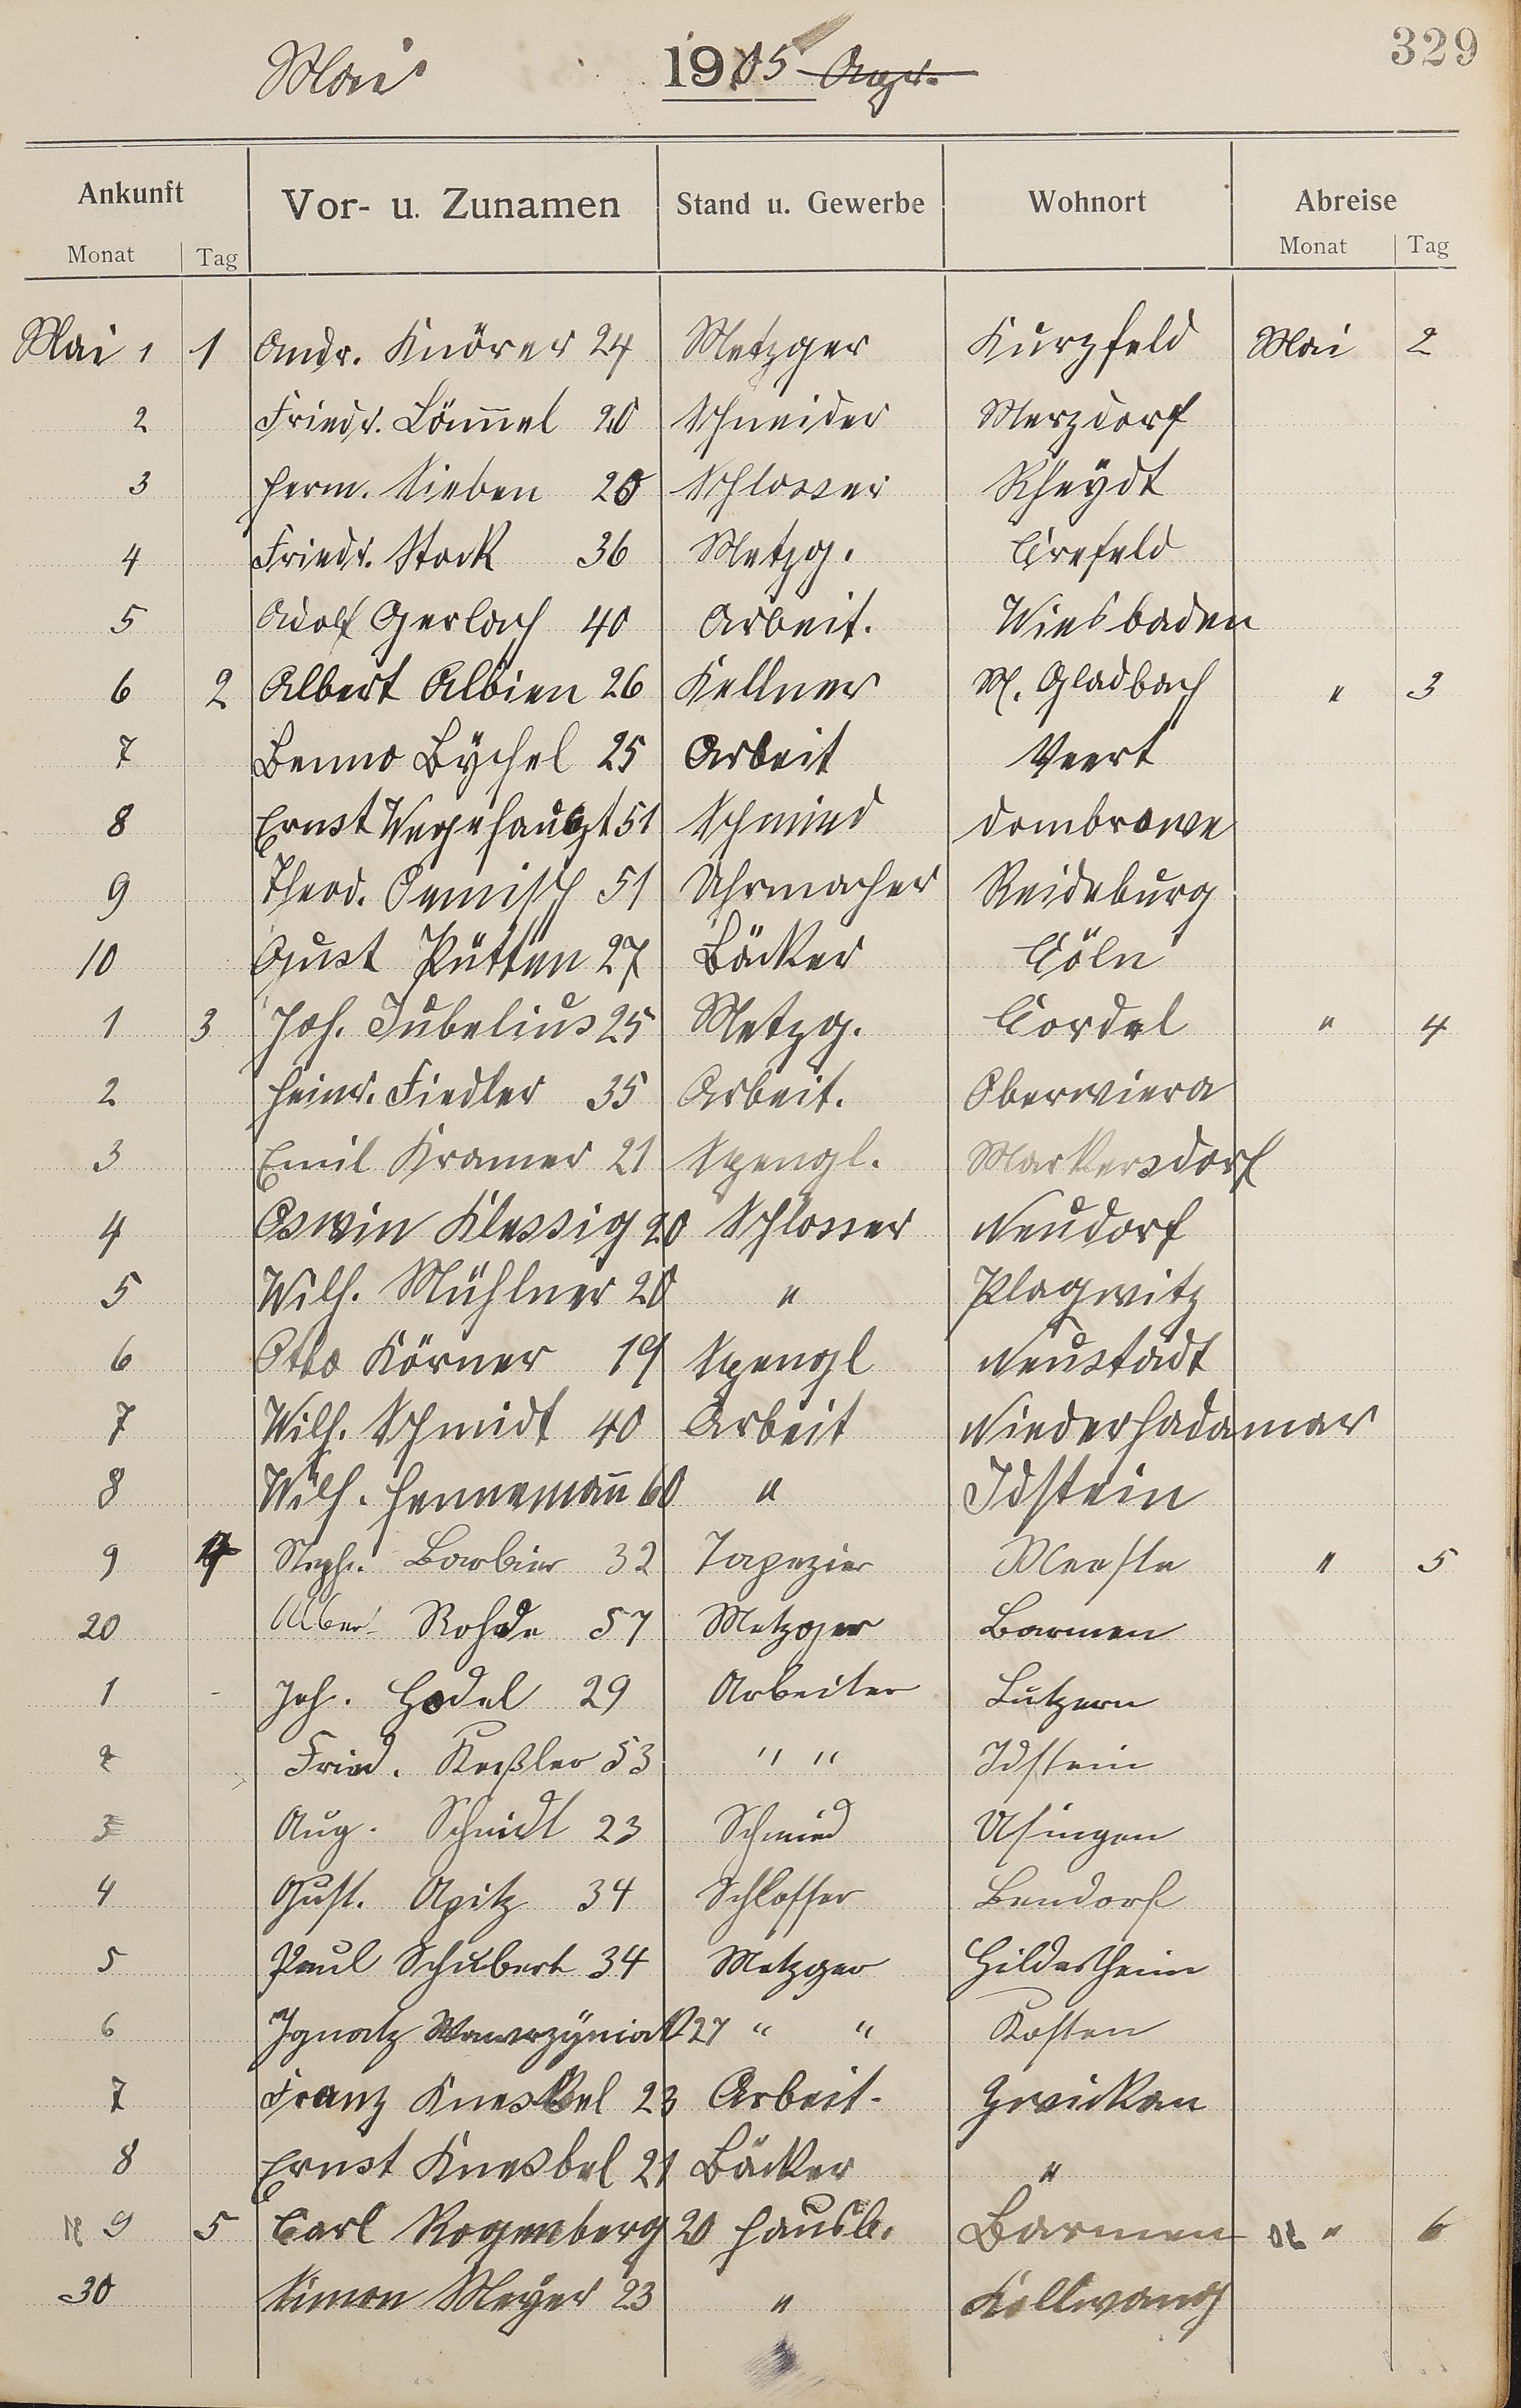 329
Mai 1905 Apr.
Ankunft Vor- u. Zunamen Stand u. Gewerbe Wohnort Abreise
Monat Tag Monat Tag
Mai 1 1 Andr. Knörer 24 Metzger Kurzfeld Mai 2
2 Friedr. Löm̅el 20 Schneider Merzdorf
3 Herm. Sieben 20 Schlosser Rheydt
4 Friedr. Stock 36 Metzg. Crefeld
5 Adolf Gerlach 40 Arbeit. Wiesbaden
6 2 Albert Albien 26 Kellner M. Gladbach " 3
7 Benno Bÿchel 25 Arbeit Veert
8 Ernst Wegehaupt 51 Schmied Dombrowe
9 Theod. Oemisch 51 Uhrmacher Reideburg
10 Gust Pütten 27 Bäcker Cöln
1 3 Joh. Jubelius 25 Metzg. Cordel " 4
2 Heinr. Fiedler 35 Arbeit. Oberwiera
3 Emil Kramer 21 Spengl. Markersdorf
4 Oswin Klessig 20 Schlosser Neudorf
5 Wilh. Mühlner 20 " Plagwitz
6 Otto Körner 19 Spengl Neustadt
7 Wilh. Schmidt 40 Arbeit Niederhadamar
8 Wilh. Henneman̅ 60 " Idstein
9 4 Steph. Barbier 32 Tapezier " 5
20 Alber. Rohde 57 Metzger Barmen
1 Joh. Hodel 29 Arbeiter Lutzern
2 Fried. Keßler 53 " " Idstein
3 Aug. Schmidt 23 Schmied Usingen
4 Gust. Apitz 34 Schlosser Bendorf
5 Paul Schubert 34 Metzger Hildesheim
6 Ignatz Wawrzÿniak 27 " " Kosten
7 Franz Kneskel 23 Arbeit. Zwickau
8 Ernst Knesbel 21 Bäcker "
9 5 Carl Rogenberg 20 Hausb. Barmen " 6
30 Simon Meÿer 23 "